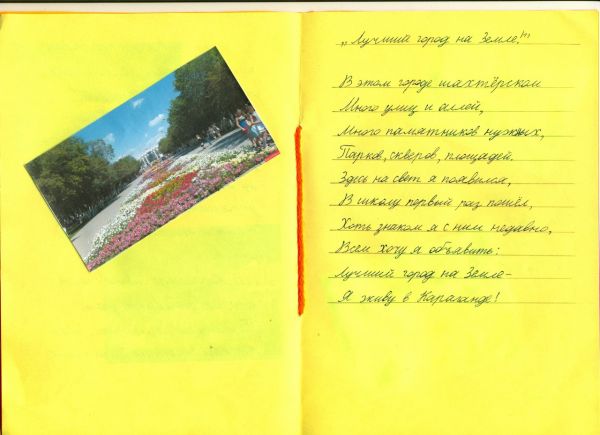 „Лучший город на Земле!"
В этом городе шахтёрском
Много улиц и аллей,
Много памятников нужных,
Парков, скверов, площадей.
Здесь на свет я появился,
В школу первый раз пошёл,
Хоть знаком я с ним недавно,
Всем хочу я объявить:
Лучший город на Земле-
Я живу в Караганде!